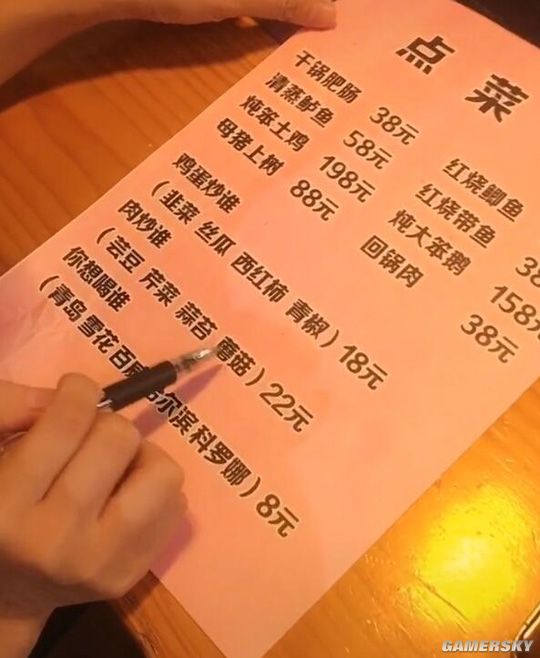 点 菜
干锅肥肠 38元
清蒸鲈鱼 58元
炖笨土鸡 198元
母猪上树 88元
红烧鲫鱼
红烧带鱼 38
炖大笨鹅 158元
回锅肉 38元
鸡蛋炒谁
(韭菜 丝瓜 西红柿 青椒) 18元
肉炒谁
(芸豆 芹菜 蒜苔 蘑菇) 22元
你想喝谁
(青岛 雪花 百威 哈尔滨 科罗娜) 8元
GAMERSKY